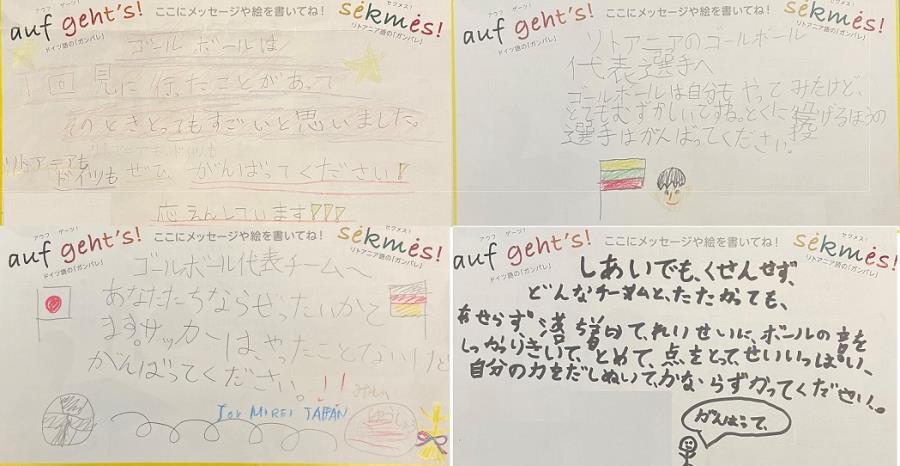 アウフ ゲーツ!
auf geht's!
ドイツ語の「ガンバレ」
ここにメッセージや絵を書いてね!
セクメス!
sėkmės!
リトアニア語の「ガンバレ」
ゴールボールは
1回見に行たことがあって
そのときとってもすごいと思いました。
リトアニアも
ドイツも ぜひ がんばってください!
応えんしています!!!
アウフ ゲーツ!
auf geht's!
ドイツ語の「ガンバレ」
ここにメッセージや絵を書いてね!
セクメス!
sėkmės!
リトアニア語の「ガンバレ」
リトアニアのゴールボール
代表選手へ
ゴールボールは自分もやってみたけど、
とてもむずかしいですね。とくに投げるほうの
選手はがんばってください。
アウフ ゲーツ!
auf geht's!
ドイツ語の「ガンバレ」
ここにメッセージや絵を書いてね!
セクメス!
sėkmės!
リトアニア語の「ガンバレ」
ゴールボール代表チームへ
あなたたちならぜったいかて
ます。サッカーは、やったことないけど
がんばってください。!!
for MIREI JAPAN
アウフ ゲーツ!
auf geht's!
ドイツ語の「ガンバレ」
ここにメッセージや絵を書いてね!
セクメス!
sėkmės!
リトアニア語の「ガンバレ」
しあいでも、くせんせず、
どんなチームと、たたかっても、
あせらず、落ち着いて、れいせいに、ボールの音を
しっかりきいて、とめて、点をとって、せいいっぱい、
自分の力をだしぬいて、かならずかってください。
がんばって、